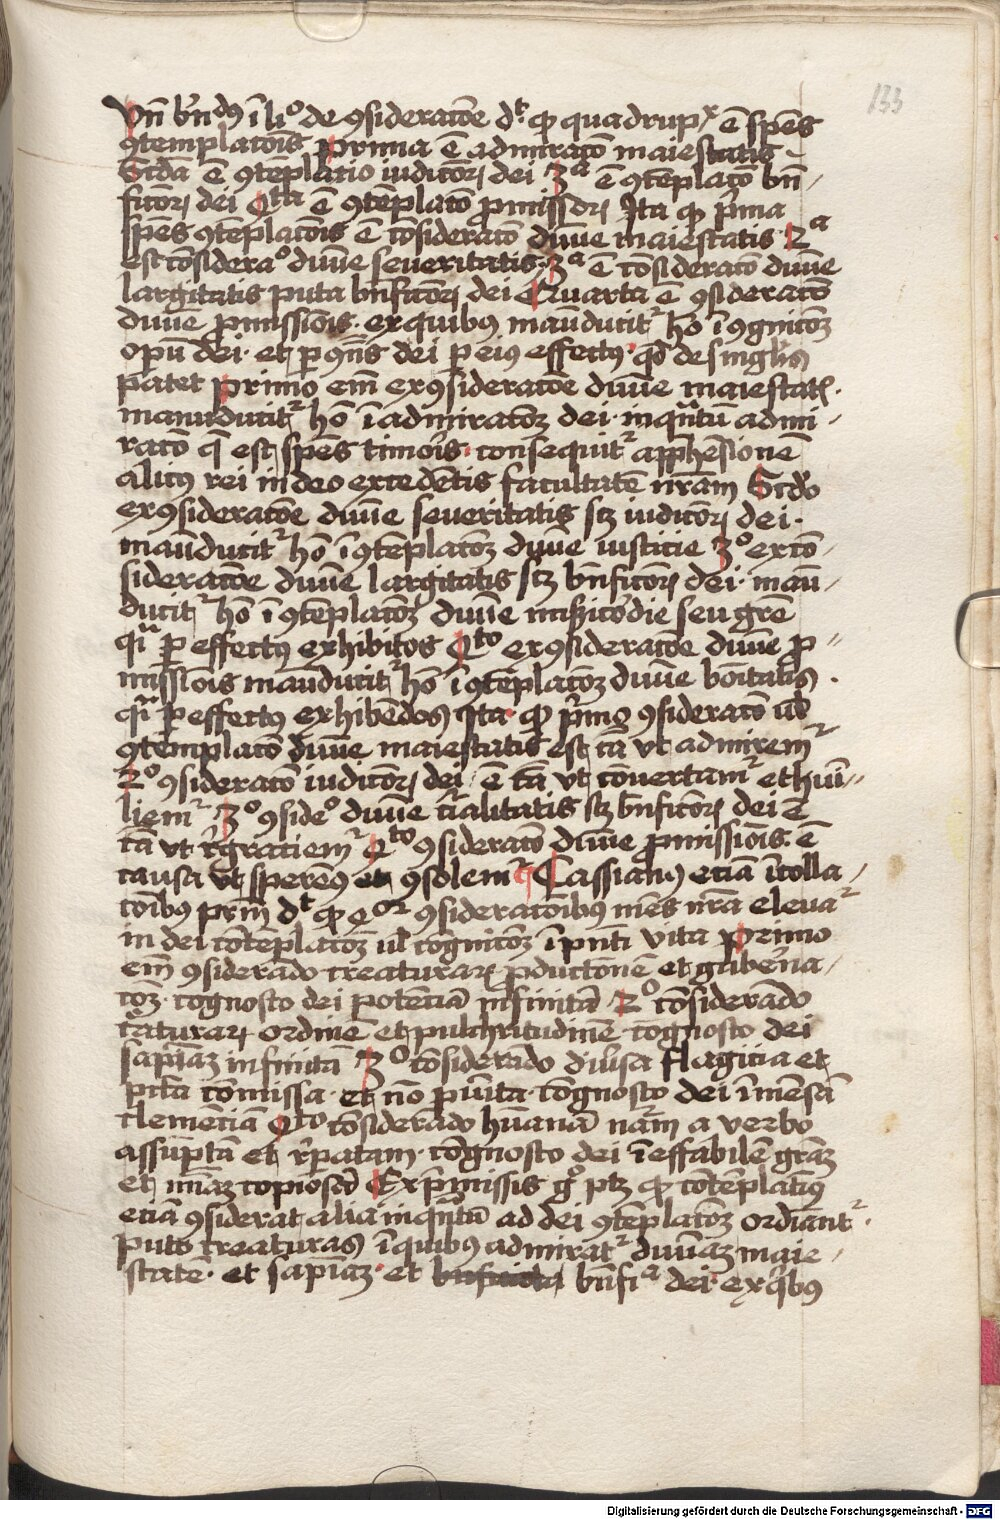 133
Vn̄ b'ndꝰ ī li° de ꝯsideratōe dt̄ ꝙ quadrupx ē spēs
ꝯtemplatōis prima ē admiratō maiestatis
Scda ē ꝯtēplatio iudicoꝝ dei 3a ē ꝯtēplatō bn̄
ficioꝝ dei Qta ē ꝯtēplatō ꝓmissoꝝ Ita ꝙ pima
spēs ꝯtēplatōis ē cōsideratō diuīe maiestatis 2a
est cōsidera° diuīe seueritatis 3a ē cōsideratō diuīe
largitatis puta bn̄ficioꝝ dei Quarta ē ꝯsideratō
diuīe ꝓmissiōis ex quibꝰ manuducit' hō ī ꝯgnitōꝫ
dei et dei ꝑ eius effectꝰ qd de singlis
patet primo em̄ ex ꝯsideratōe diuīe maiestat
manuducit' hō ī admiratōꝫ dei inqn̄tū admi
ratō q̄ est spēs timoris consequit' apphēsionē
alicꝰ rei in deo excedētis facultatē nr̄am Scdo
ex ꝯsideratōe diuīe seueritatis scꝫ iudicioꝝ dei
mānducit' hō ī ꝯtēplatōꝫ diuīe iusticie 3° ex cō
sideratōe diuīe largitatis scꝫ bn̄ficioꝝ dei mān
ducit' hō ī ꝯtēplatōꝫ diuīe mīsicordie seu grē
qn̄ ꝑ effectꝰ exhibitos Qto ex ꝯsideratōe diuīe ꝓ
missiōis mānducit' hō ī ꝯtēplatōꝫ diuīe bōitatis
qn̄ ꝑ effectꝰ exhibēdos Ita ꝙ pima ꝯsideratō ul
ꝯtemplatō diuīe maiestatis est cā vt admirem'
2° ꝯsideratō iudicioꝝ dei ē cā vt cōuertam' et humi
liem' 3° ꝯside° diuīe l'alitatis scꝫ bn̄ficioꝝ dei ē
cā vt r'gratiem' Qto ꝯsideratō diuīe ꝓmissiōis ē
causa vt sperem' et ꝯsolem' Cassianꝰ etiā ī colla
tōibꝰ prm̄ dt̄ ꝙ qor ꝯsideratōibꝰ mēs nr̄a eleua'
in dei cōtēplatōꝫ ul cognitōꝫ ī pn̄ti vita primo
em̄ ꝯsiderādo creaturaꝝ ꝓductionē et gubērna
tōꝫ cognosco dei potēciā infinitā 2° cōsiderādo
creaturaꝝ ordinē et pulchritudinē cognosco dei
sapīaꝫ infinitā 3° cōsiderādo diu'sa flagicia et
pctā cōmissa et nō pūita cognosco dei īmēsā
clemēciā Qto cōsiderādo hūanā nām a verbo
assūptā et r'ꝑatam cognosco dei īeffabilē grāꝫ
et mīaꝫ copiosā Ex pmissis g° ptꝫ ꝙ cōtēplatiuꝰ
etiā ꝯsiderat alia inqn̄tū ad dei ꝯtēplatōꝫ ordiant'
puta creaturas ī quibꝰ admirat' diuīaꝫ maie
statē et sapīaꝫ et bn̄fia dei ex qibꝰ
Digitalisierung gefördert durch die Deutsche Forschungsgemeinschaft - DFG